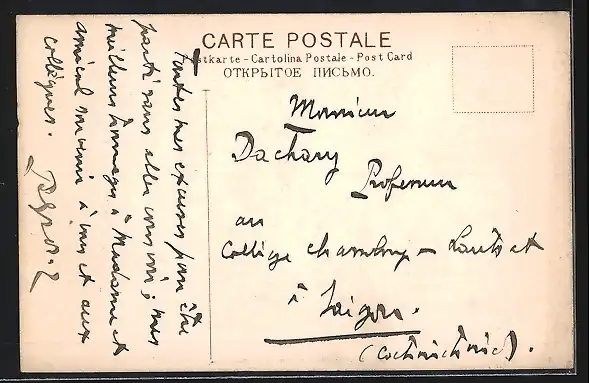 CARTE POSTALE
Postkarte - Cartolina Postale - Post Card
ОТКРЫТОЕ ПИСЬМО.
Toutes mes excuses pour être
parti sans aller vous voir ; mes
meilleurs hommages à Madame et
amical souvenir à vous et aux
collègues.
Monsieur
Dachary
Professeur
au
Collège Chasseloup - Laubat
à Saigon.
(Cochinchine).